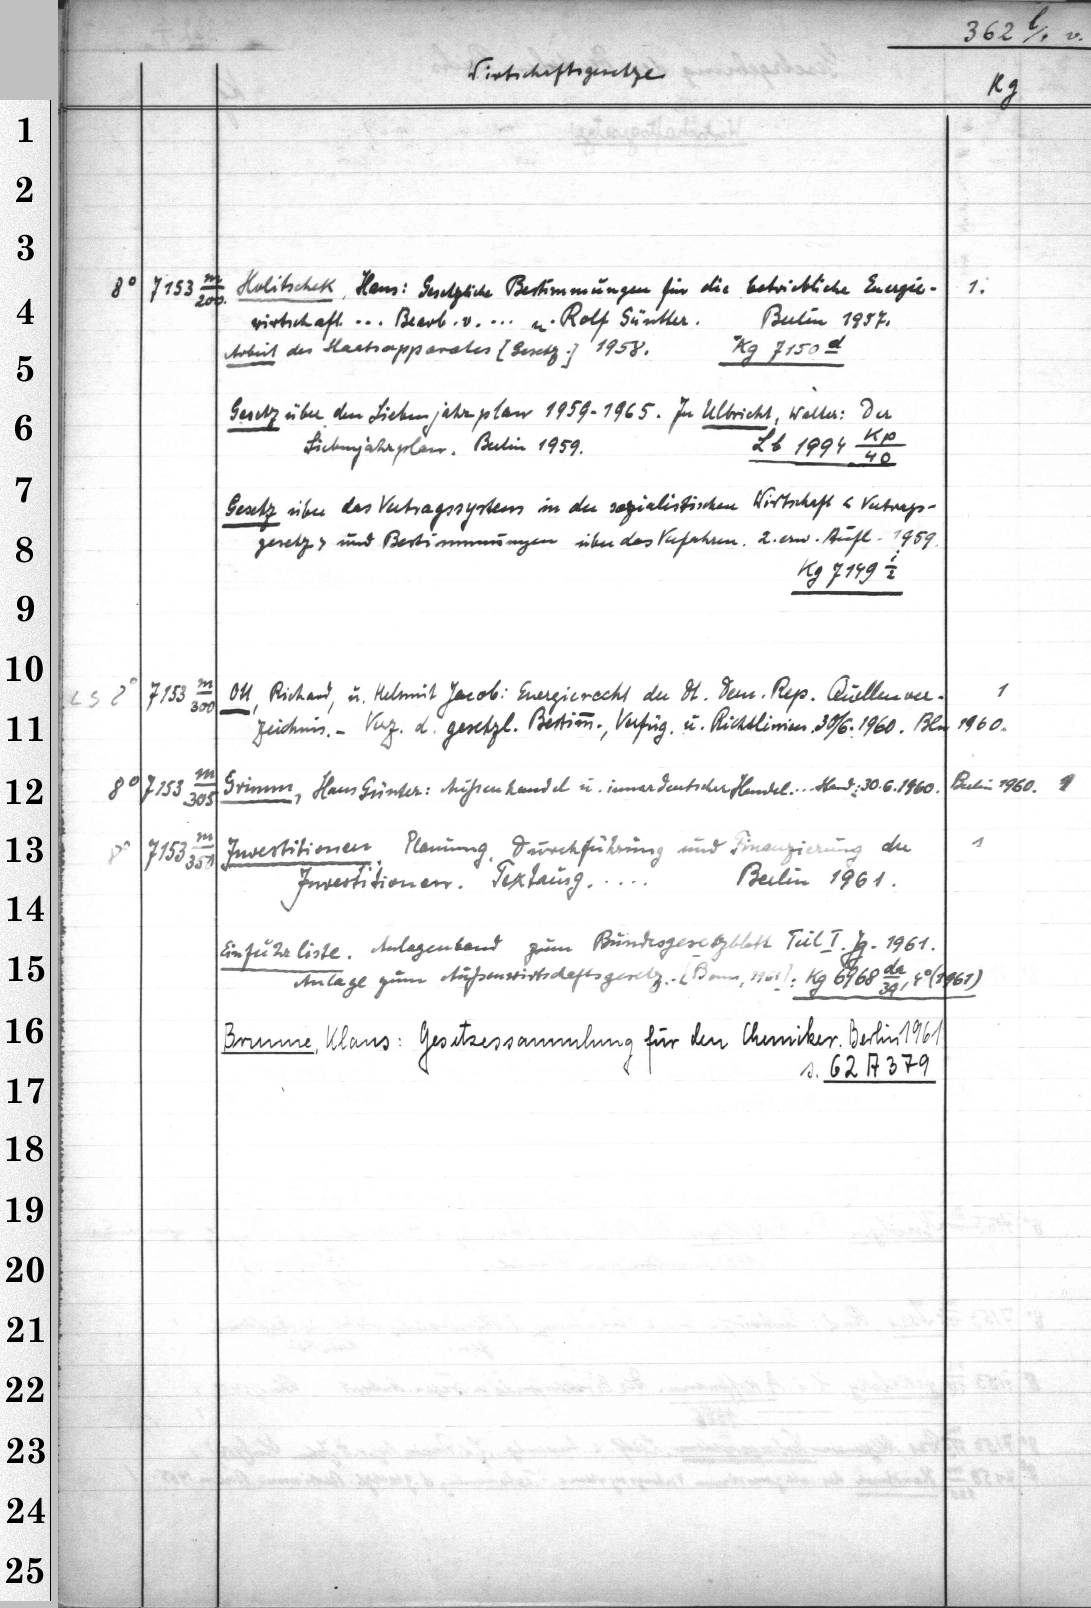 362 l/1 v.
Wirtschaftsgesetze
Kg
1
2
3
8° 7153 m/200. Holitschek, Hans: Gesetzliche Bestimmungen für die betriebliche Energie- 1.
4
wirtschaft ... Bearb. v. ... u. Rolf Günther. Berlin 1957.
Arbeit des Staatsapparates [Gesetz.] 1958. Kg 7150 d
5
6
Gesetz über den Siebenjahrplan 1959-1965. In Ulbricht, Walter: Der
Siebenjahrplan. Berlin 1959. Lb 1994 Kp/40
7
Gesetz über das Vertragssystem in der sozialistischen Wirtschaft < Vertrags-
8
gesetz > und Bestimmungen über das Verfahren. 2. erw. Aufl. 1959.
Kg 7149 i/2
9
10
LS 8° 7153 m/300 Ott, Richard, u. Helmut Jacob: Energierecht der Dt. Dem. Rep. Quellenver- 1
11
zeichnis. - Verz. d. gesetzl. Bestimm., Verfüg. u. Richtlinien. 30/6. 1960. Bln 1960.
12
8° 7153 m/305 Grimm, Hans Günter: Außenhandel u. innerdeutscher Handel... Stand: 30.6.1960. Berlin 1960. 1
13
8° 7153 m/351 Investitionen. Planung, Durchführung und Finanzierung der 1
Investitionen. Textausg. .... Berlin 1961.
14
Einfuhrliste. Anlagenband zum Bundesgesetzblatt Teil I. Jg. 1961.
15
Anlage zum Außenwirtschaftsgesetz. [Bonn, 1961]: Kg 6968 da/39, 4° (1961)
16
Brumme, Klaus: Gesetzessammlung für den Chemiker. Berlin 1961
s. 62 A 379
17
18
19
20
21
22
23
24
25